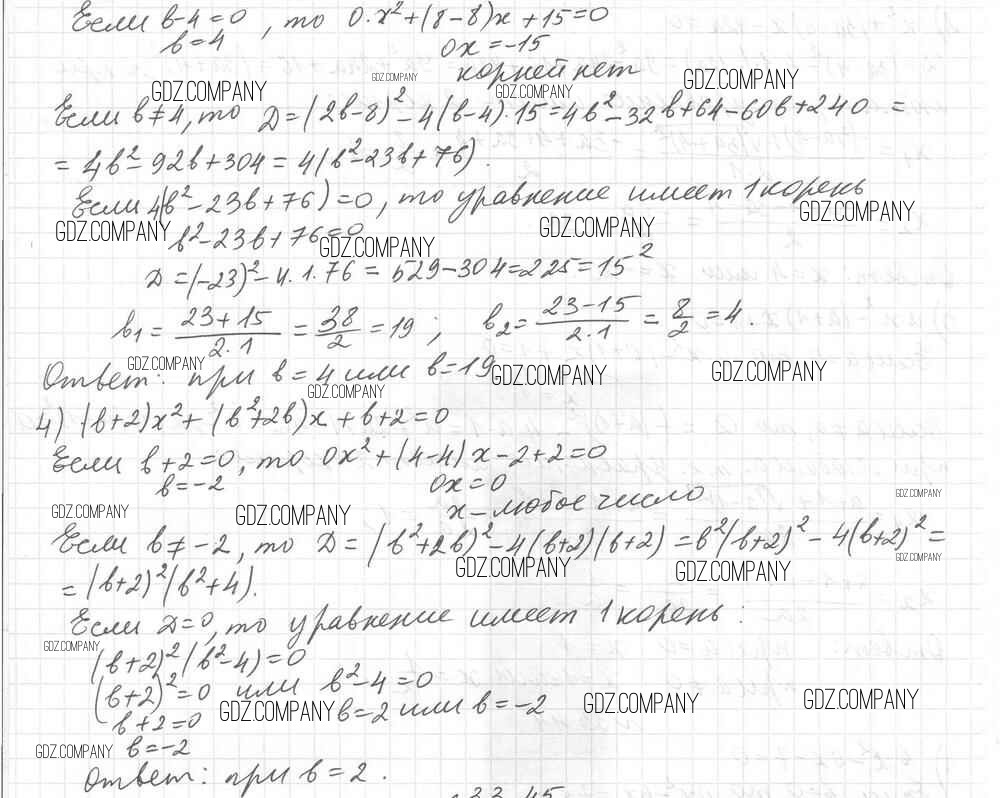 Если b-4=0, то 0·x²+(8-8)x+15=0
b=4 0x=-15
корней нет
GDZ.COMPANY GDZ.COMPANY GDZ.COMPANY GDZ.COMPANY
Если b≠4, то D=(2b-8)²-4(b-4)·15=4b²-32b+64-60b+240=
=4b²-92b+304=4(b²-23b+76).
Если 4(b²-23b+76)=0, то уравнение имеет 1 корень
GDZ.COMPANY b²-23b+76=0 GDZ.COMPANY GDZ.COMPANY GDZ.COMPANY
D=(-23)²-4.1.76=529-304=225=15²
b₁=(23+15)/(2·1)=38/2=19; b₂=(23-15)/(2·1)=8/2=4.
GDZ.COMPANY
Ответ: при b=4 или b=19 GDZ.COMPANY GDZ.COMPANY
GDZ.COMPANY
4) (b+2)x²+(b²+2b)x+b+2=0
Если b+2=0, то 0x²+(4-4)x-2+2=0
b=-2 0x=0
x-любое число
GDZ.COMPANY GDZ.COMPANY GDZ.COMPANY
Если b≠-2, то D=(b²+2b)²-4(b+2)(b+2)=b²(b+2)²-4(b+2)²=
GDZ.COMPANY GDZ.COMPANY GDZ.COMPANY
=(b+2)²(b²+4).
Если D=0, то уравнение имеет 1 корень:
GDZ.COMPANY
(b+2)²(b²-4)=0
(b+2)²=0 или b²-4=0
b+2=0 GDZ.COMPANY b=2 или b=-2 GDZ.COMPANY GDZ.COMPANY
GDZ.COMPANY b=-2
Ответ: при b=2.